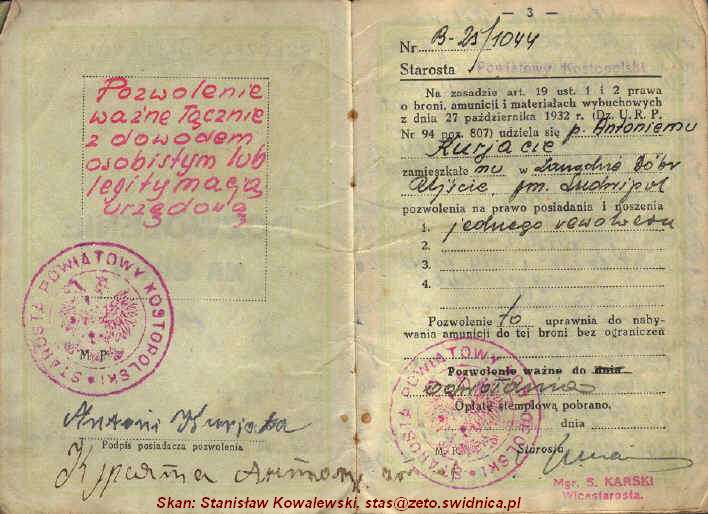 Pozwolenie
ważne łącznie
z dowodem
osobistym lub
legitymacją
urzędową
STAROSTA POWIATOWY KOSTOPOLSKI
M. P.
Antoni Kurjata
Podpis posiadacza pozwolenia
— 3 —
Nr B-25/1044
Starosta Powiatowy Kostopolski
Na zasadzie art. 19 ust. 1 i 2 prawa
o broni, amunicji i materiałach wybuchowych
z dnia 27 października 1932 r. (Dz. U. R. P.
Nr 94 poz. 807) udziela się p. Antoniemu
Kurjacie
zamieszkałemu w Zarządzie Dóbr
gm. Ludwipol
pozwolenia na prawo posiadania i noszenia
1. jednego rewolweru
2.
3.
4.
Pozwolenie to uprawnia do naby-
wania amunicji do tej broni bez ograniczeń
Pozwolenie ważne do dnia
odwołania
Opłatę stemplową pobrano,
dnia
M. P.
Starosta
STAROSTA POWIATOWY KOSTOPOLSKI
Mgr. S. KARSKI
Wicestarosta.
Skan: Stanisław Kowalewski, stas@zeto.swidnica.pl